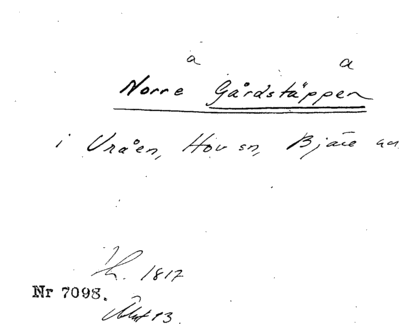 a a
Norre Gårdstäppen
i Vråen, Hov sn, Bjäre
1817
Nr 7098.
13.